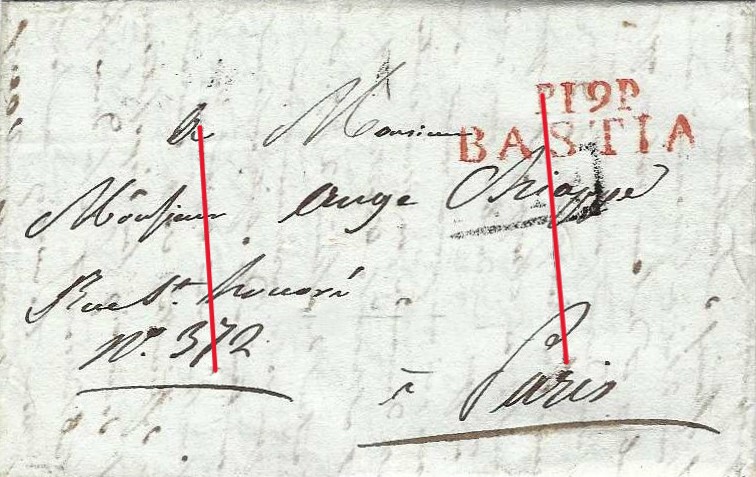 P19P
BASTIA
A Monsieur
Monsieur Ange Chiappe
Rue St. honoré
N°. 372
à Paris